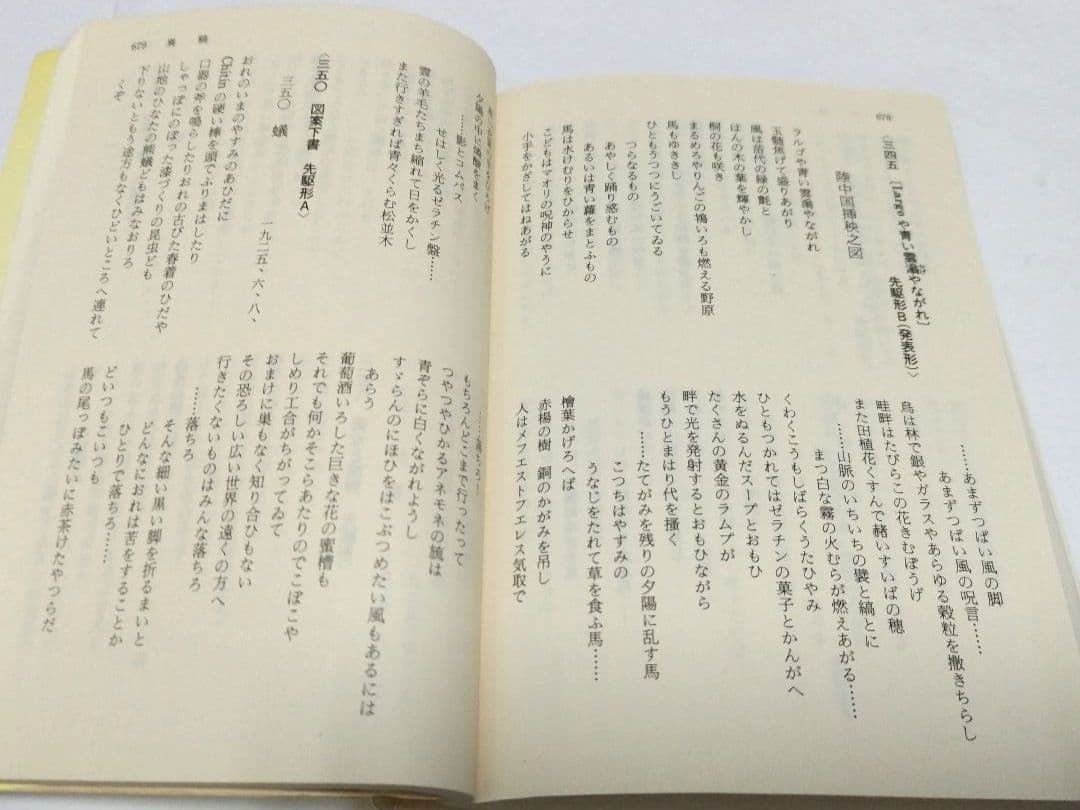 678
〈三四五 〔Largoや青い雲滃やながれ〕
先駆形B(発表形)〉
陸中国挿秧之図
ラルゴや青い雲滃やながれ
玉髄焦げて盛りあがり
風は苗代の緑の氈と
はんの木の葉を輝やかし
桐の花も咲き
まるめろやりんごの鴾いろも燃える野原
馬もゆききし
ひともうつつにうごいてゐる
つらなるもの
あやしく踊り惑むもの
あるいは青い蘿をまとふもの
馬は水けむりをひからせ
こどもはマオリの呪神のやうに
小手をかざしてはねあがる
……あまずつぱい風の脚
あまずつぱい風の呪言……
烏は林で銀やガラスやあらゆる穀粒を撒きちらし
畦畔はたびらこの花きむぽうげ
また田植花くすんで赭いすいばの穂
……山脈のいちいちの襞と縞とに
まつ白な霧の火むらが燃えあがる……
くわくこうもしばらくうたひやみ
ひともつかれてはゼラチンの菓子とかんがへ
水をぬるんだスープとおもひ
たくさんの黄金のランプが
畔で光を発射するとおもひながら
もうひとまはり代を掻く
……たてがみを残りの夕陽に乱す馬
こつちはやすみの
うなじをたれて草を食ふ馬……
檜葉かげろへば
赤楊の樹 銅のかがみを吊し
人はメフエストフエレス気取で
679 異稿
……影とコムパス
せはしく光るゼラチン盤……
雲の羊毛たちまち縮れて日をかくし
また行きすぎれば青々くらむ松並木
〈三五〇 図案下書 先駆形A〉
三五〇 蟻
一九二五、六、八、
おれのいまのやすみのあひだに
Chitinの硬い棒を頭でふりまはしたり
口器の斧を鳴らしたりおれの古びた春着のひだや
しゃっぽにのぼった漆づくりの昆虫ども
山地のひなたの熊蟻どもはみなおりろ
下りないともう途方もなくひどいところへ連れて
くぞ
もちろんどこまで行ったって
つやつやひかるアネモネの旒は
青ぞらに白くながれようし
すゞらんのにほひをはこぶつめたい風もあるには
あらう
葡萄酒いろした巨きな花の蜜槽も
それでも何かそこらあたりのでこぼこや
しめり工合がちがってゐて
おまけに巣もなく知り合ひもない
その恐ろしい広い世界の遠くの方へ
行きたくないものはみんな落ちろ
……落ちろ
そんな細い黒い脚を折るまいと
どんなにおれは苦をすることか
ひとりで落ちろ……
どいつもこいつも
馬の尾っぽみたいに赤茶けたやつらだ